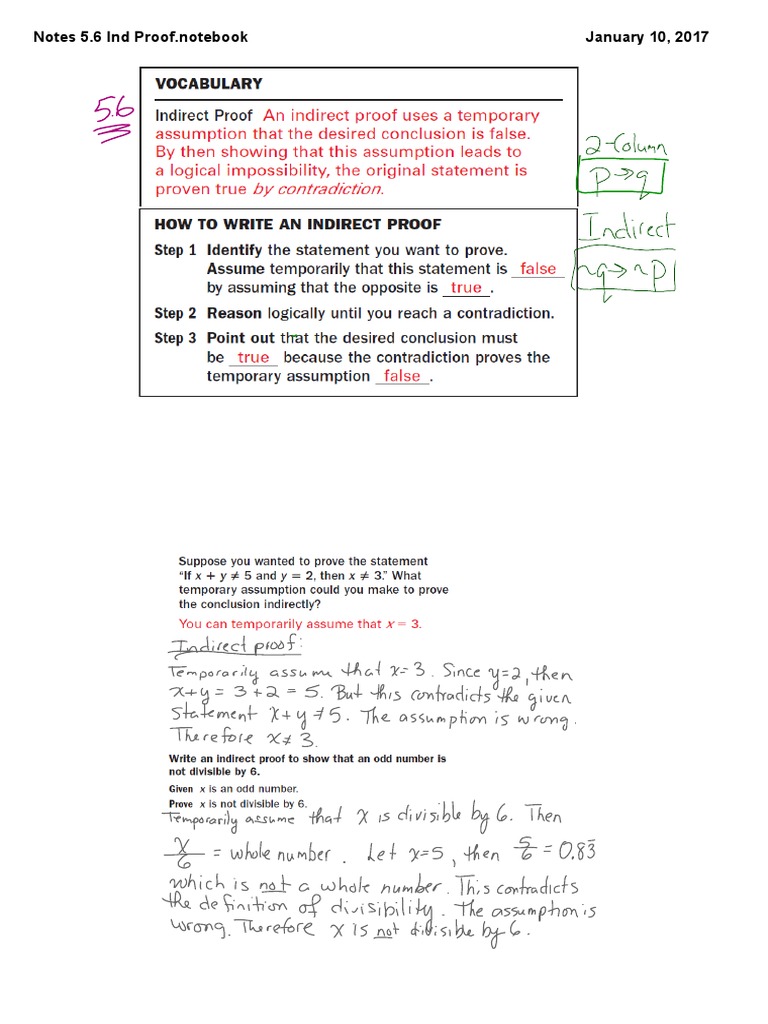 Notes 5.6 Ind Proof.notebook
January 10, 2017
5.6
VOCABULARY
Indirect Proof An indirect proof uses a temporary
assumption that the desired conclusion is false.
By then showing that this assumption leads to
a logical impossibility, the original statement is
proven true by contradiction.
2-Column
P→q
HOW TO WRITE AN INDIRECT PROOF
Step 1 Identify the statement you want to prove.
Assume temporarily that this statement is false
by assuming that the opposite is true.
Step 2 Reason logically until you reach a contradiction.
Step 3 Point out that the desired conclusion must
be true because the contradiction proves the
temporary assumption false.
Indirect
~q→~P
Suppose you wanted to prove the statement
“If x + y ≠ 5 and y = 2, then x ≠ 3.” What
temporary assumption could you make to prove
the conclusion indirectly?
You can temporarily assume that x = 3.
Indirect proof:
Temporarily assume that x=3. Since y=2, then
x+y = 3+2 = 5. But this contradicts the given
Statement x+y≠5. The assumption is wrong.
Therefore x≠3.
Write an indirect proof to show that an odd number is
not divisible by 6.
Given x is an odd number.
Prove x is not divisible by 6.
Temporarily assume that x is divisible by 6. Then
x/6 = whole number. Let x=5, then 5/6 = 0.83̅
which is not a whole number. This contradicts
the definition of divisibility. The assumption is
wrong. Therefore x is not divisible by 6.